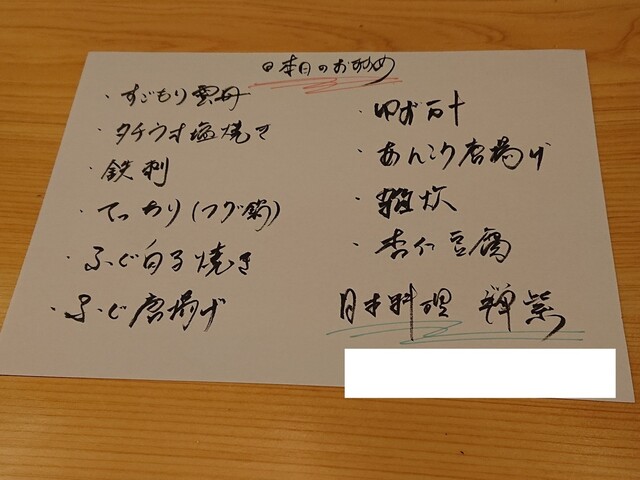 本日のお奨め
・すごもり雲丹
・タチウオ塩焼き
・鉄刺
・てっちり(フグ鍋)
・ふぐ白子焼き
・ふぐ唐揚げ
・ゆず
・あんこう唐揚げ
・雑炊
・杏仁豆腐
日本料理